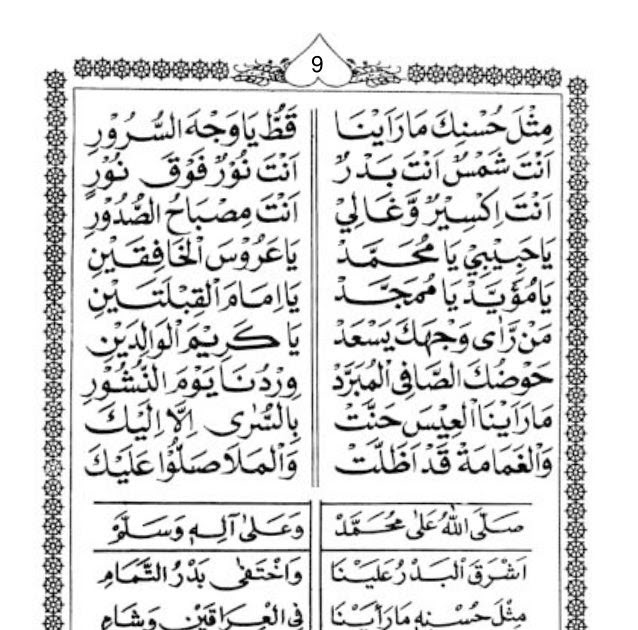 9
مِثْلَ حُسْنِكَ مَارَاَيْنَا قَطُّ يَاوَجْهَ السُّرُوْرِ
اَنْتَ شَمْسٌ اَنْتَ بَدْرٌ اَنْتَ نُوْرٌ فَوْقَ نُوْرٍ
اَنْتَ اِكْسِيْرٌ وَّغَالِيْ اَنْتَ مِصْبَاحُ الصُّدُوْرِ
يَاحَبِيْبِيْ يَا مُحَمَّدْ يَاعَرُوْسَ الْخَافِقَيْنِ
يَامُؤَيَّدْ يَا مُمَجَّدْ يَااِمَامَ الْقِبْلَتَيْنِ
مَنْ رَّاٰى وَجْهَكَ يَسْعَدْ يَا كَرِيْمَ الْوَالِدَيْنِ
حَوْضُكَ الصَّافِى الْمُبَرَّدْ وِرْدُنَا يَوْمَ النُّشُوْرِ
مَارَاَيْنَا الْعِيْسَ حَنَّتْ بِالسُّرٰى اِلَّا اِلَيْكَ
وَالْغَمَامَةْ قَدْ اَظَلَّتْ وَالْمَلَا صَلُّوْا عَلَيْكَ
صَلَّى اللّٰهُ عَلٰى مُحَمَّدْ وَعَلٰى آلِهٖ وَسَلَّمْ
اَشْرَقَ الْبَدْرُ عَلَيْنَا وَاخْتَفٰى بَدْرُ التَّمَامِ
مِثْلَ حُسْنِهٖ مَارَأَيْنَا فِي الْعِرَاقَيْنِ وَشَامِ